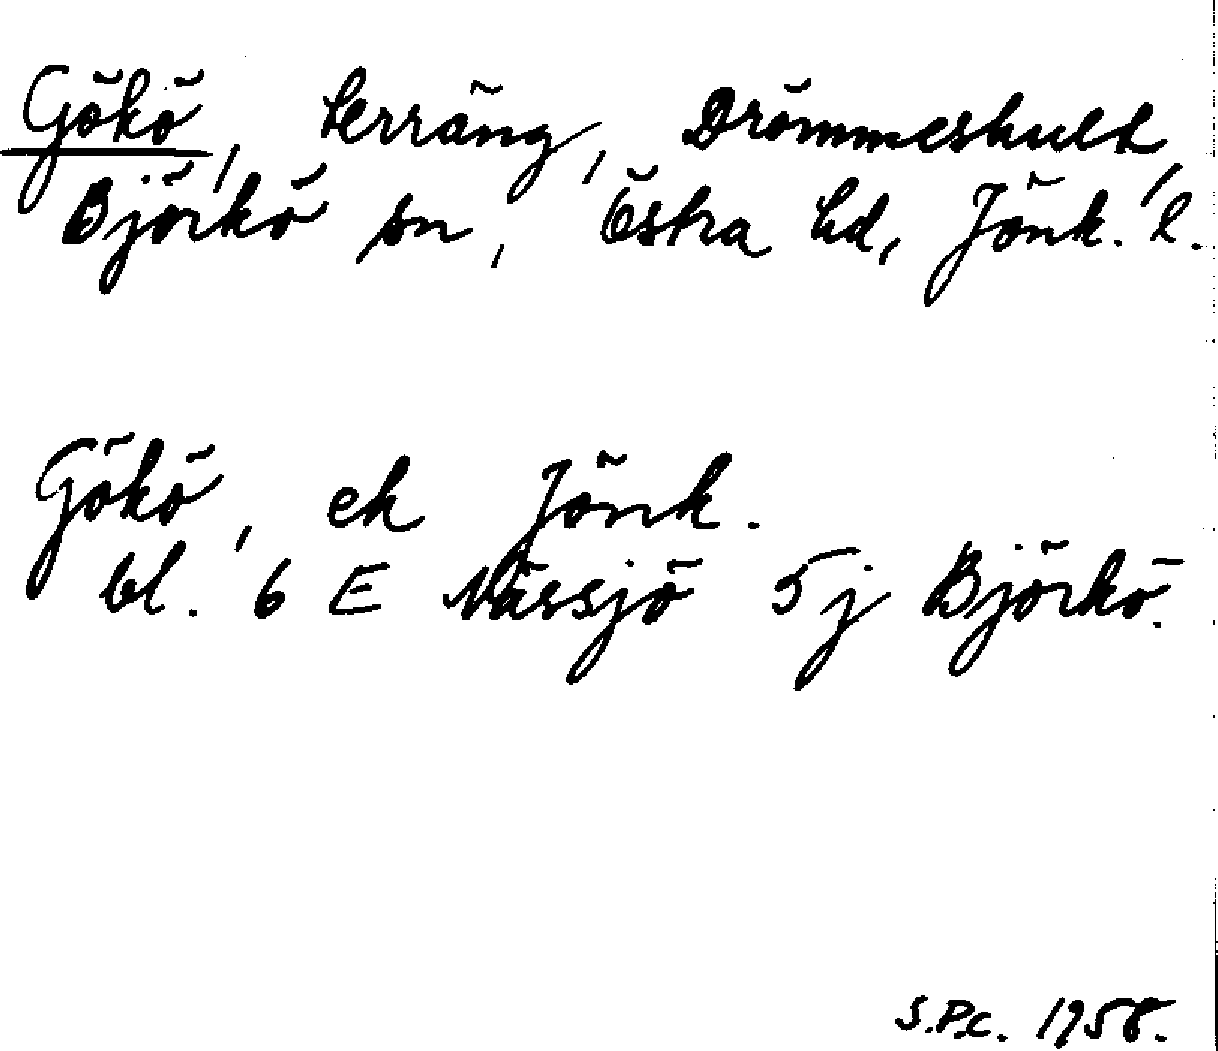 Gökö, terräng, Drömmeshult,
Björkö sn, Östra hd, Jönk. l.
Gökö, ek Jönk.
bl. 6 E Nässjö 5j Björkö.
S.P.C. 1958.